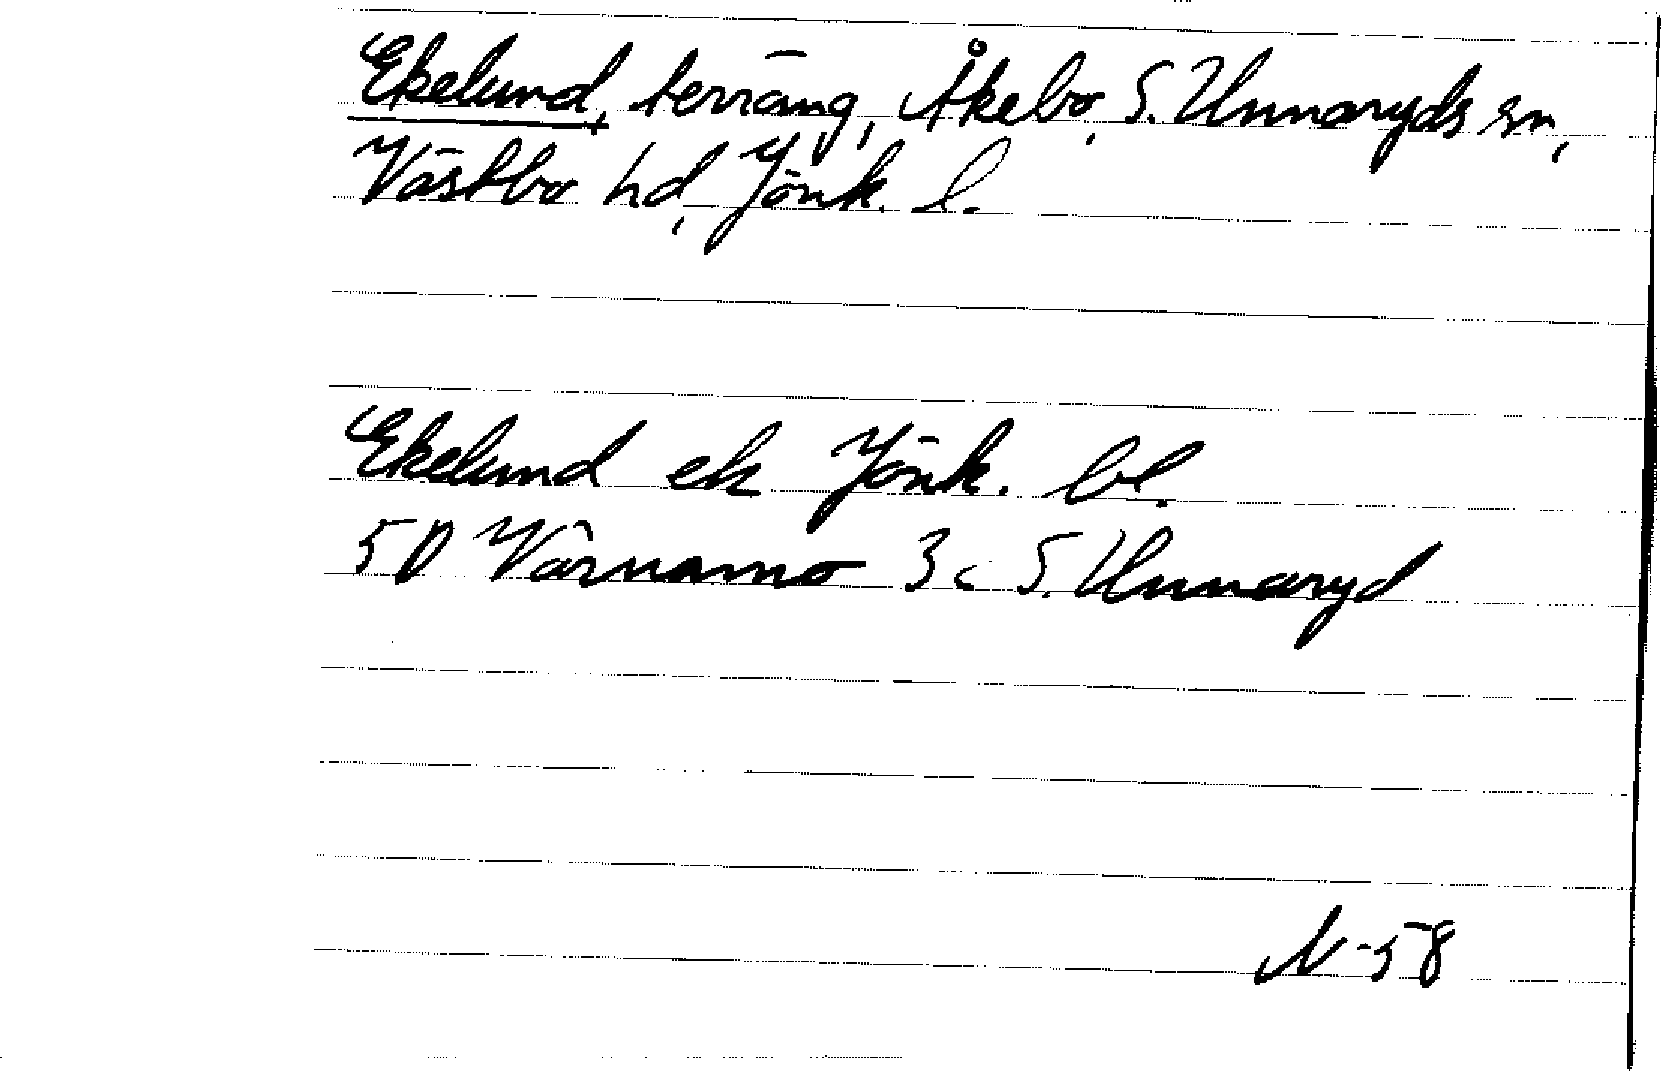 Ekelund, terräng, Åkebo, S. Unnaryds sn,
Västbo hd, Jönk. l.
Ekelund ek Jönk. bl.
5D Värnamo 3c S. Unnaryd
N-58